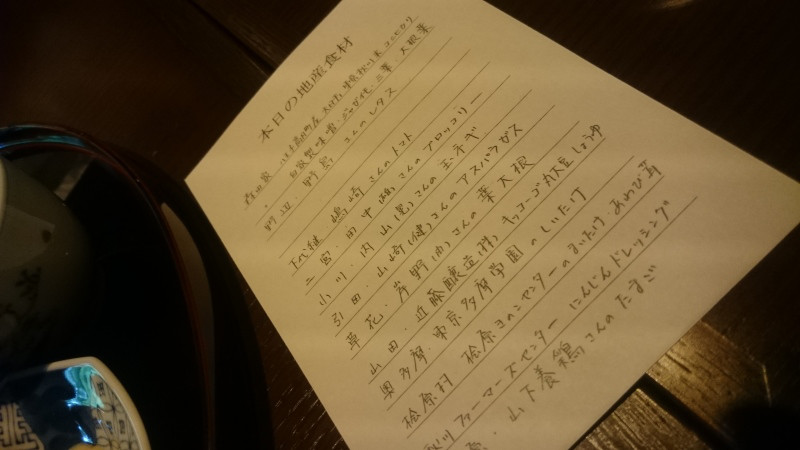 本日の地産食材
自家製味噌・
野辺・野島さんのレタス
下代継・嶋崎さんのトマト
二宮・田中嶋さんのブロッコリー
小川・内山(寛)さんの玉ネギ
引田・山崎(健)さんのアスパラガス
草花・岸野(内)さんの葉大根
山田・近藤醸造(株)キッコーゴ丸大豆しょうゆ
奥多摩・東京多摩学園のしいたけ
桧原村 桧原きのこセンターのまいたけ・あわび茸
川ファーマーズセンター にんじんドレッシング
・山下養鶏さんのたまご